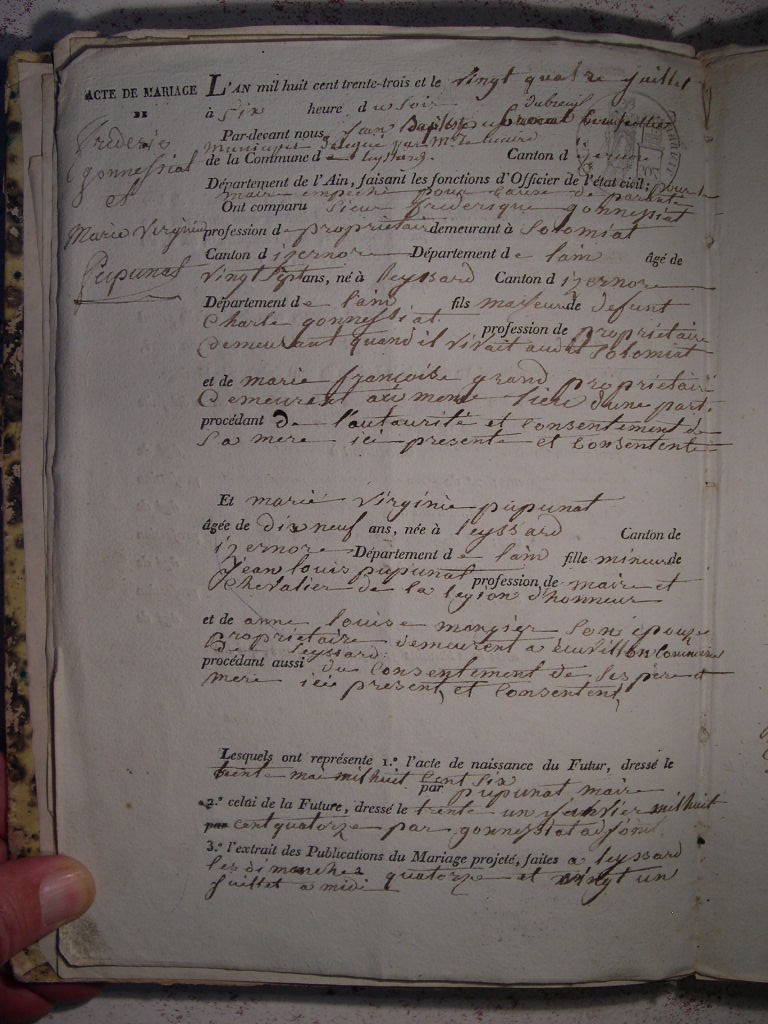 ACTE DE MARIAGE
DE
frederic
gonnessiat
et
Marie Virginie
Pupunat
L'AN mil huit cent trente-trois et le vingt quatre juillet
à Six heure du Soir
Par-devant nous Jean Baptiste dubreuil Conseiller
municipal par Mr le maire
de la Commune de leyssard Canton d'izernore
Département de l'Ain, faisant les fonctions d'Officier de l'état civil; pour le
maire empeché pour cause de parenté
Ont comparu Sieur frederique gonnessiat
profession de proprietair demeurant à Solomiat
Canton d izernore Département de lain âgé de
vingt Sept ans, né à leyssard Canton d izernore
Département de l'ain fils majeur de defunt
Charle gonnessiat profession de propriétaire
demeurant quand il vivait audit Solomiat
et de marie françoise grand propriétaire
Demeurent au meme lieu d'une part.
procédant de l'autaurité et Consentement de
Sa mere ici presente et Consentente
Et marie Virginie pupunat
âgée de dix neuf ans, née à leyssard Canton de
izernore Département de lain fille mineur de
Jean louis pupunat profession de maire et
Chevalier de la legion d'honneur
et de anne louise mongier Son épouze
propriétaire demeurent a Commune
de leyssard.
procédant aussi du Consentement de Ses père et
mere ici present et Consentent
Lesquels ont représenté 1.º l'acte de naissance du Futur, dressé le
trente mai mil huit Cent Six
par pupunat maire
2.º celui de la Future, dressé le trente un Janvier mil huit
par Cent quatorze par gonnessiat adjoint
3.º l'extrait des Publications du Mariage projeté, faites a leyssard
les dimanches quatorze et vingt un
Juillet a midi